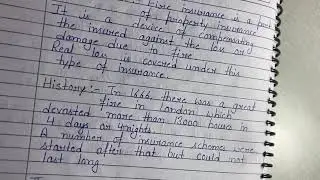 Fire insurance is a part
of property insurance
It is a device of compensating
the insured against the loss or
damage due to fire
Real loss is covered under this
type of insurance.
History:- In 1666, there was a great
fire in London which
devasted more than 13000 houses in
4 days or 4 nights.
A number of insurance schemes were
started after that but could not
last long